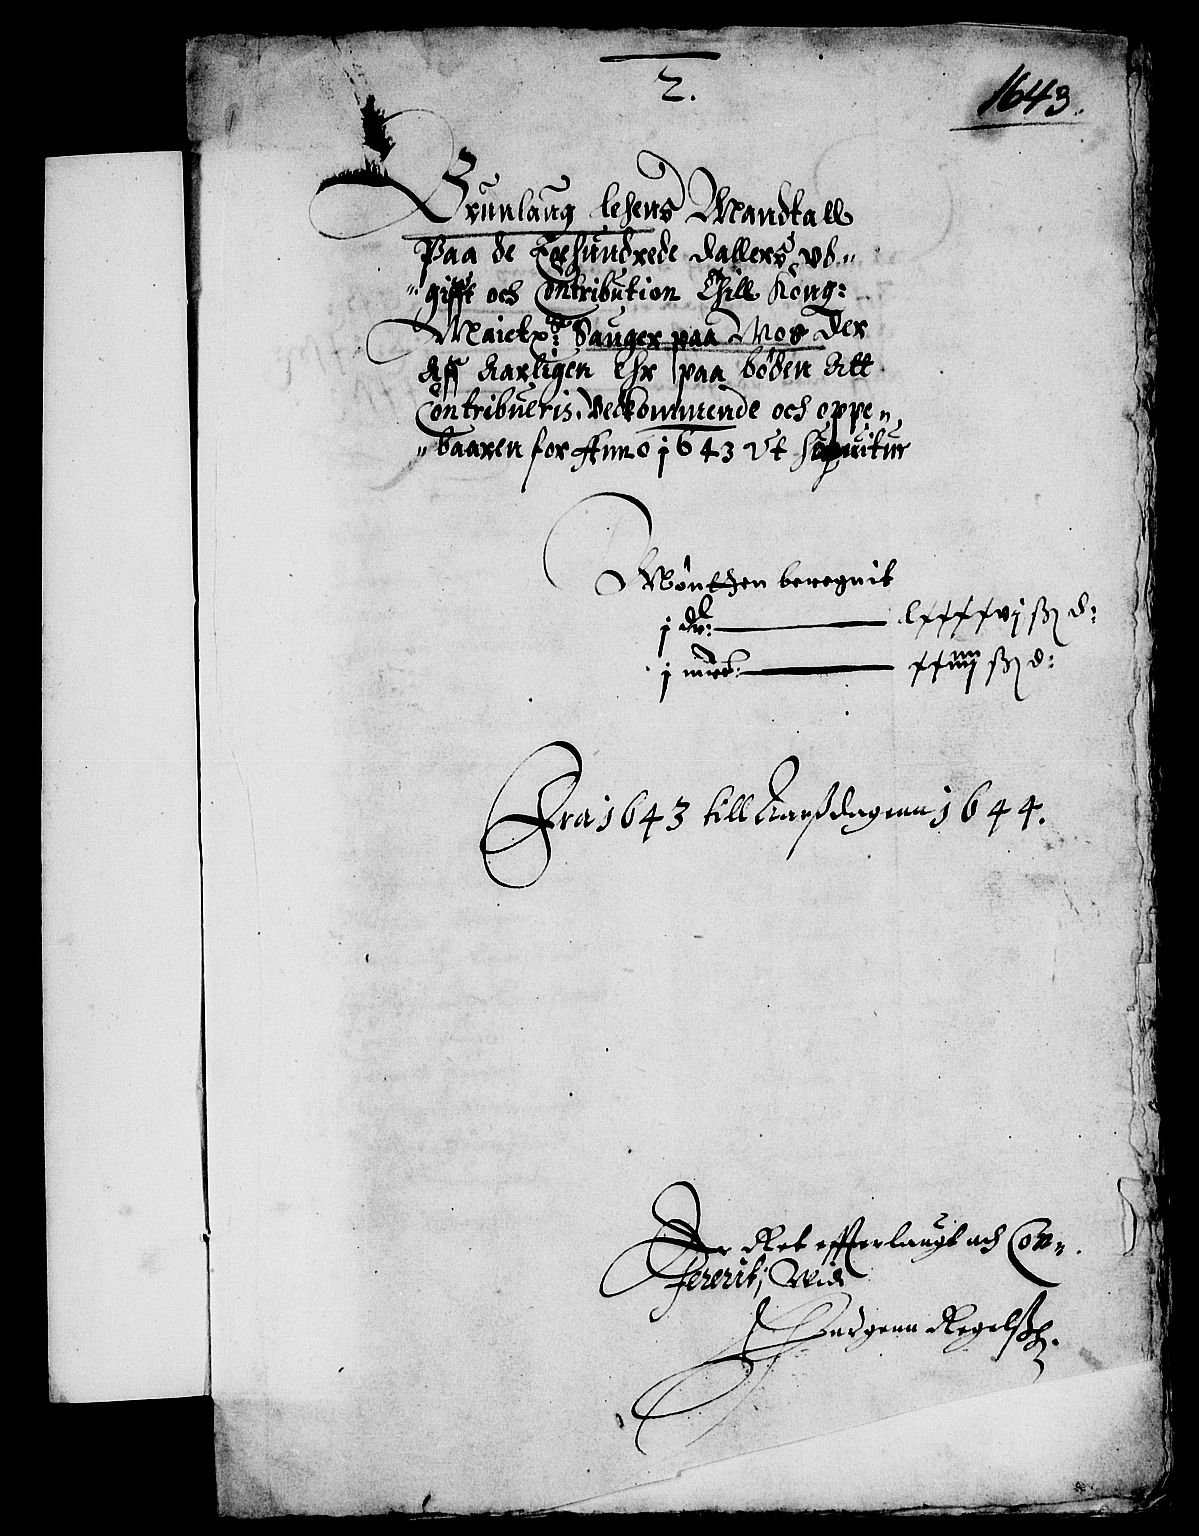 2.
1643.
Brunlaug lehens Mandtall
Paa de Trehundrede dallers vd„
„gifft och Contribution Thill Kong:
Maiets: Sauger paa Mos Der
Aff Aarligen Ehr paa bøden Att
Contribueris. Vedkommende och oppe„
„baaren for Anno 1643 Vt Sequitur
Mønthen beregnit
j dr: lxxxxvj ß d:
j mrk: xxiiij ß d:
Fra 1643 till Aarßdagenn 1644.
Er Ret effterlaugt och Con„
fererit, Wid
Jurgenn Regelß